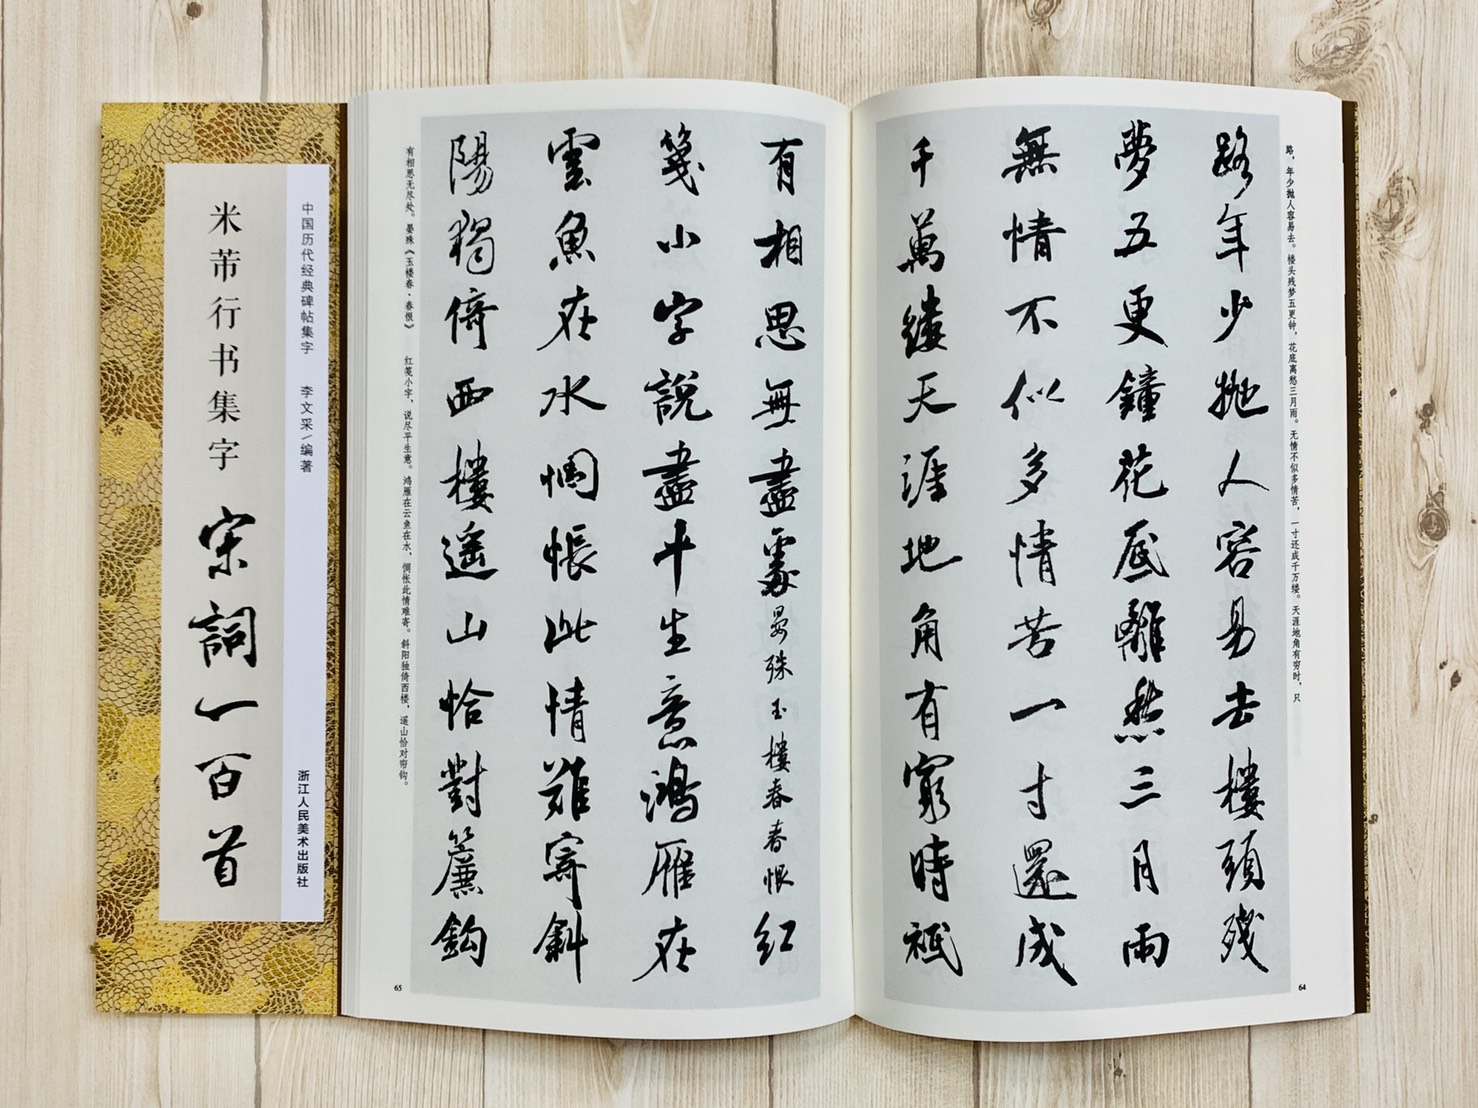 路年少抛人容易去樓頭残
夢五更鐘花底離愁三月雨
無情不似多情苦一寸還成
千萬縷天涯地角有窮時祗
路，年少抛人容易去。楼头残梦五更钟，花底离愁三月雨。无情不似多情苦，一寸还成千万缕。天涯地角有穷时，只
64
有相思無盡處晏殊玉樓春春恨红
箋小字說盡平生意鴻雁在
雲魚在水惆悵此情難寄斜
陽獨倚西樓遥山恰對簾鈎
有相思无尽处。晏殊《玉楼春·春恨》 红笺小字，说尽平生意。鸿雁在云鱼在水，惆怅此情难寄。斜阳独倚西楼，遥山恰对帘钩。
65
中国历代经典碑帖集字 李文采/编著
浙江人民美术出版社
米芾行书集字 宋詞一百首